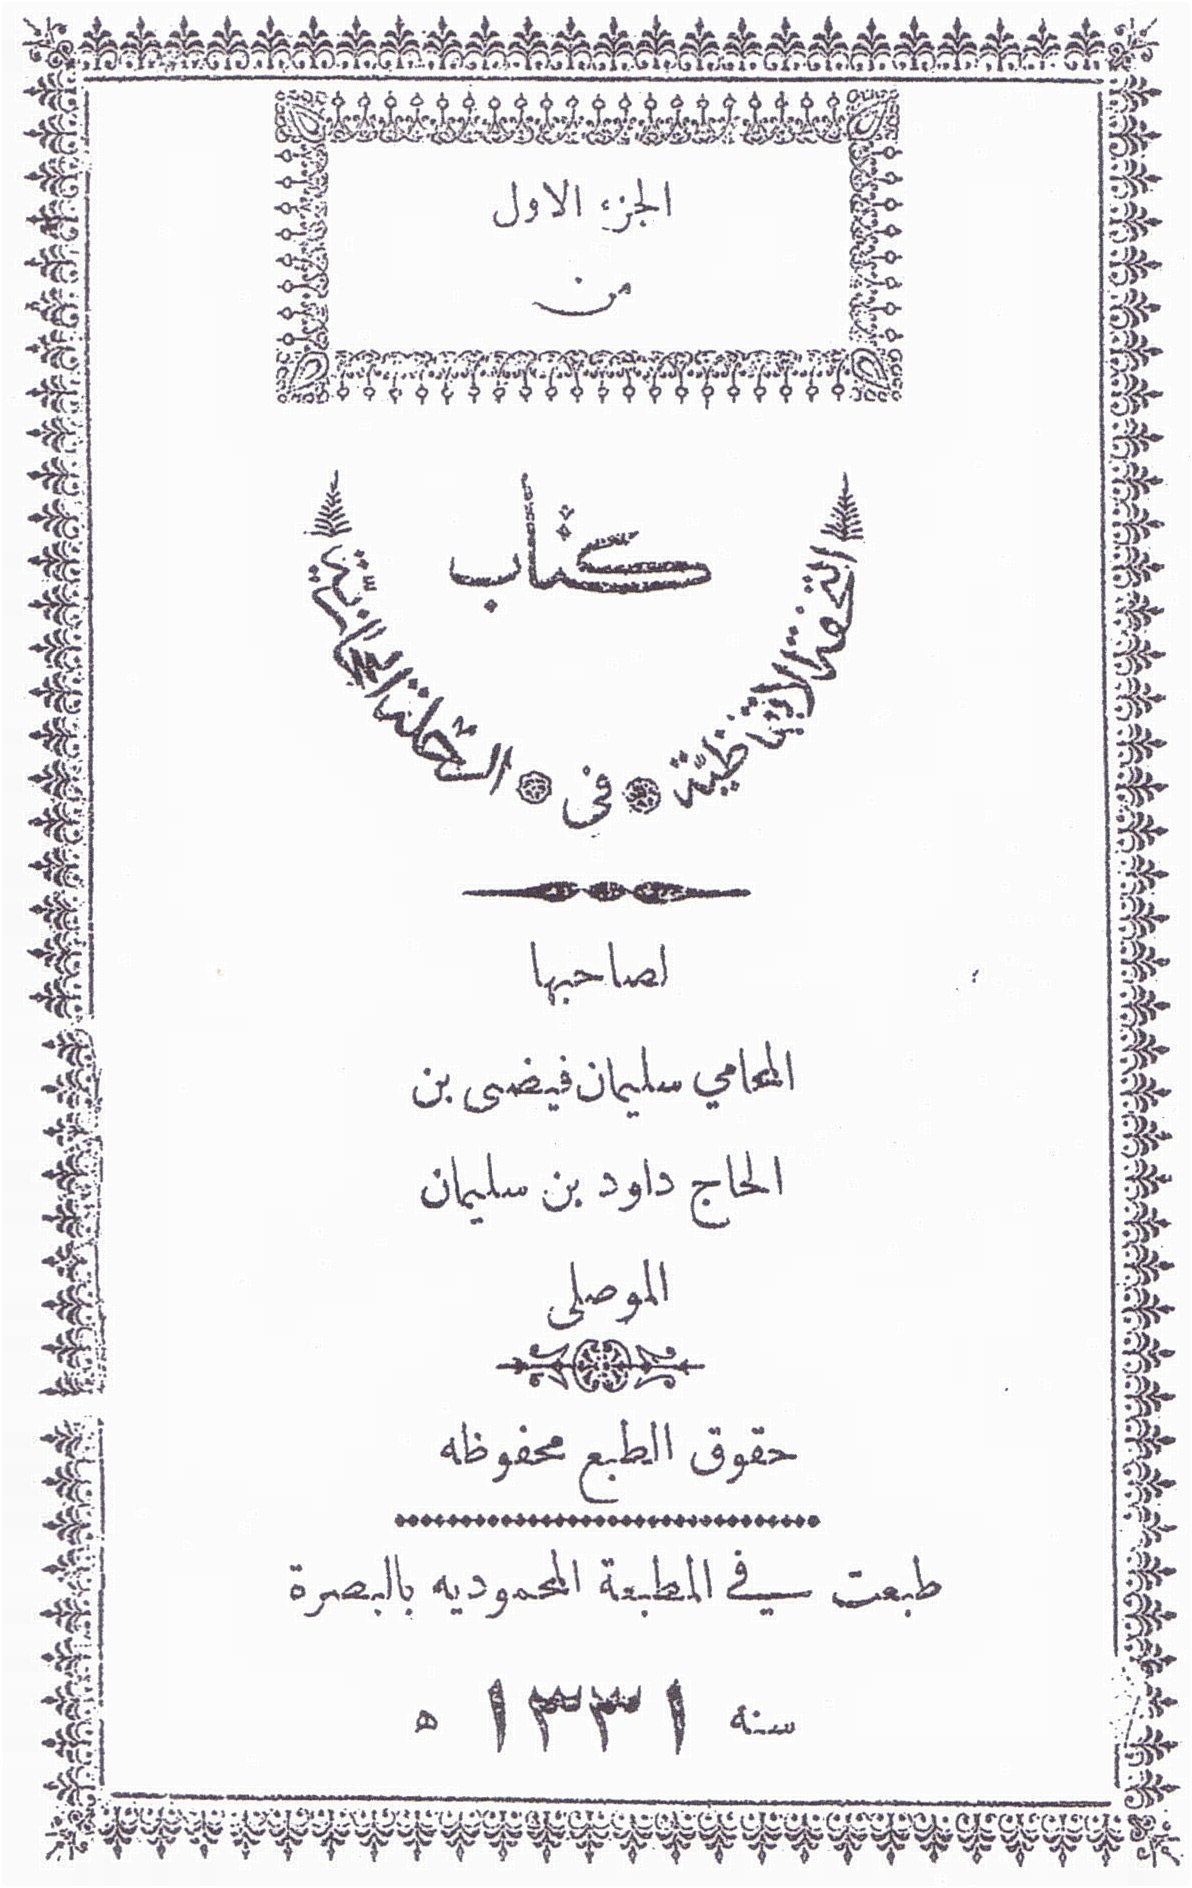 الجزء الاول
من
كتاب
التحفة الايقاظية في الرحلة الحجازية
لصاحبها
المحامي سليمان فيضى بن
الحاج داود بن سليمان
الموصلى
حقوق الطبع محفوظه
طبعت في المطبعة المحموديه بالبصرة
سنه ١٣٣١ ه